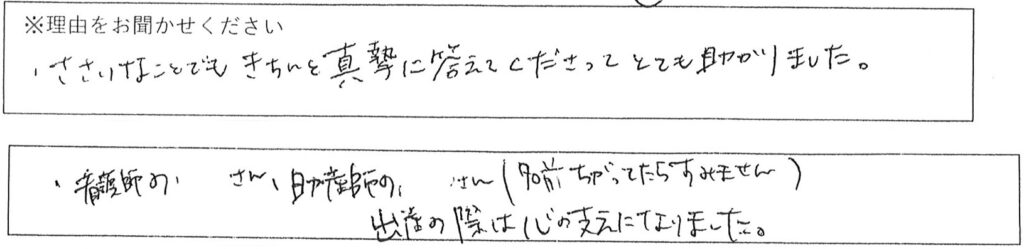 ※理由をお聞かせください
・ささいなことでもきちんと真摯に答えてくださってとても助かりました。
・看護師の、 さん、助産師の、 さん(名前ちがってたらすみません)
出産の際は心の支えになりました。